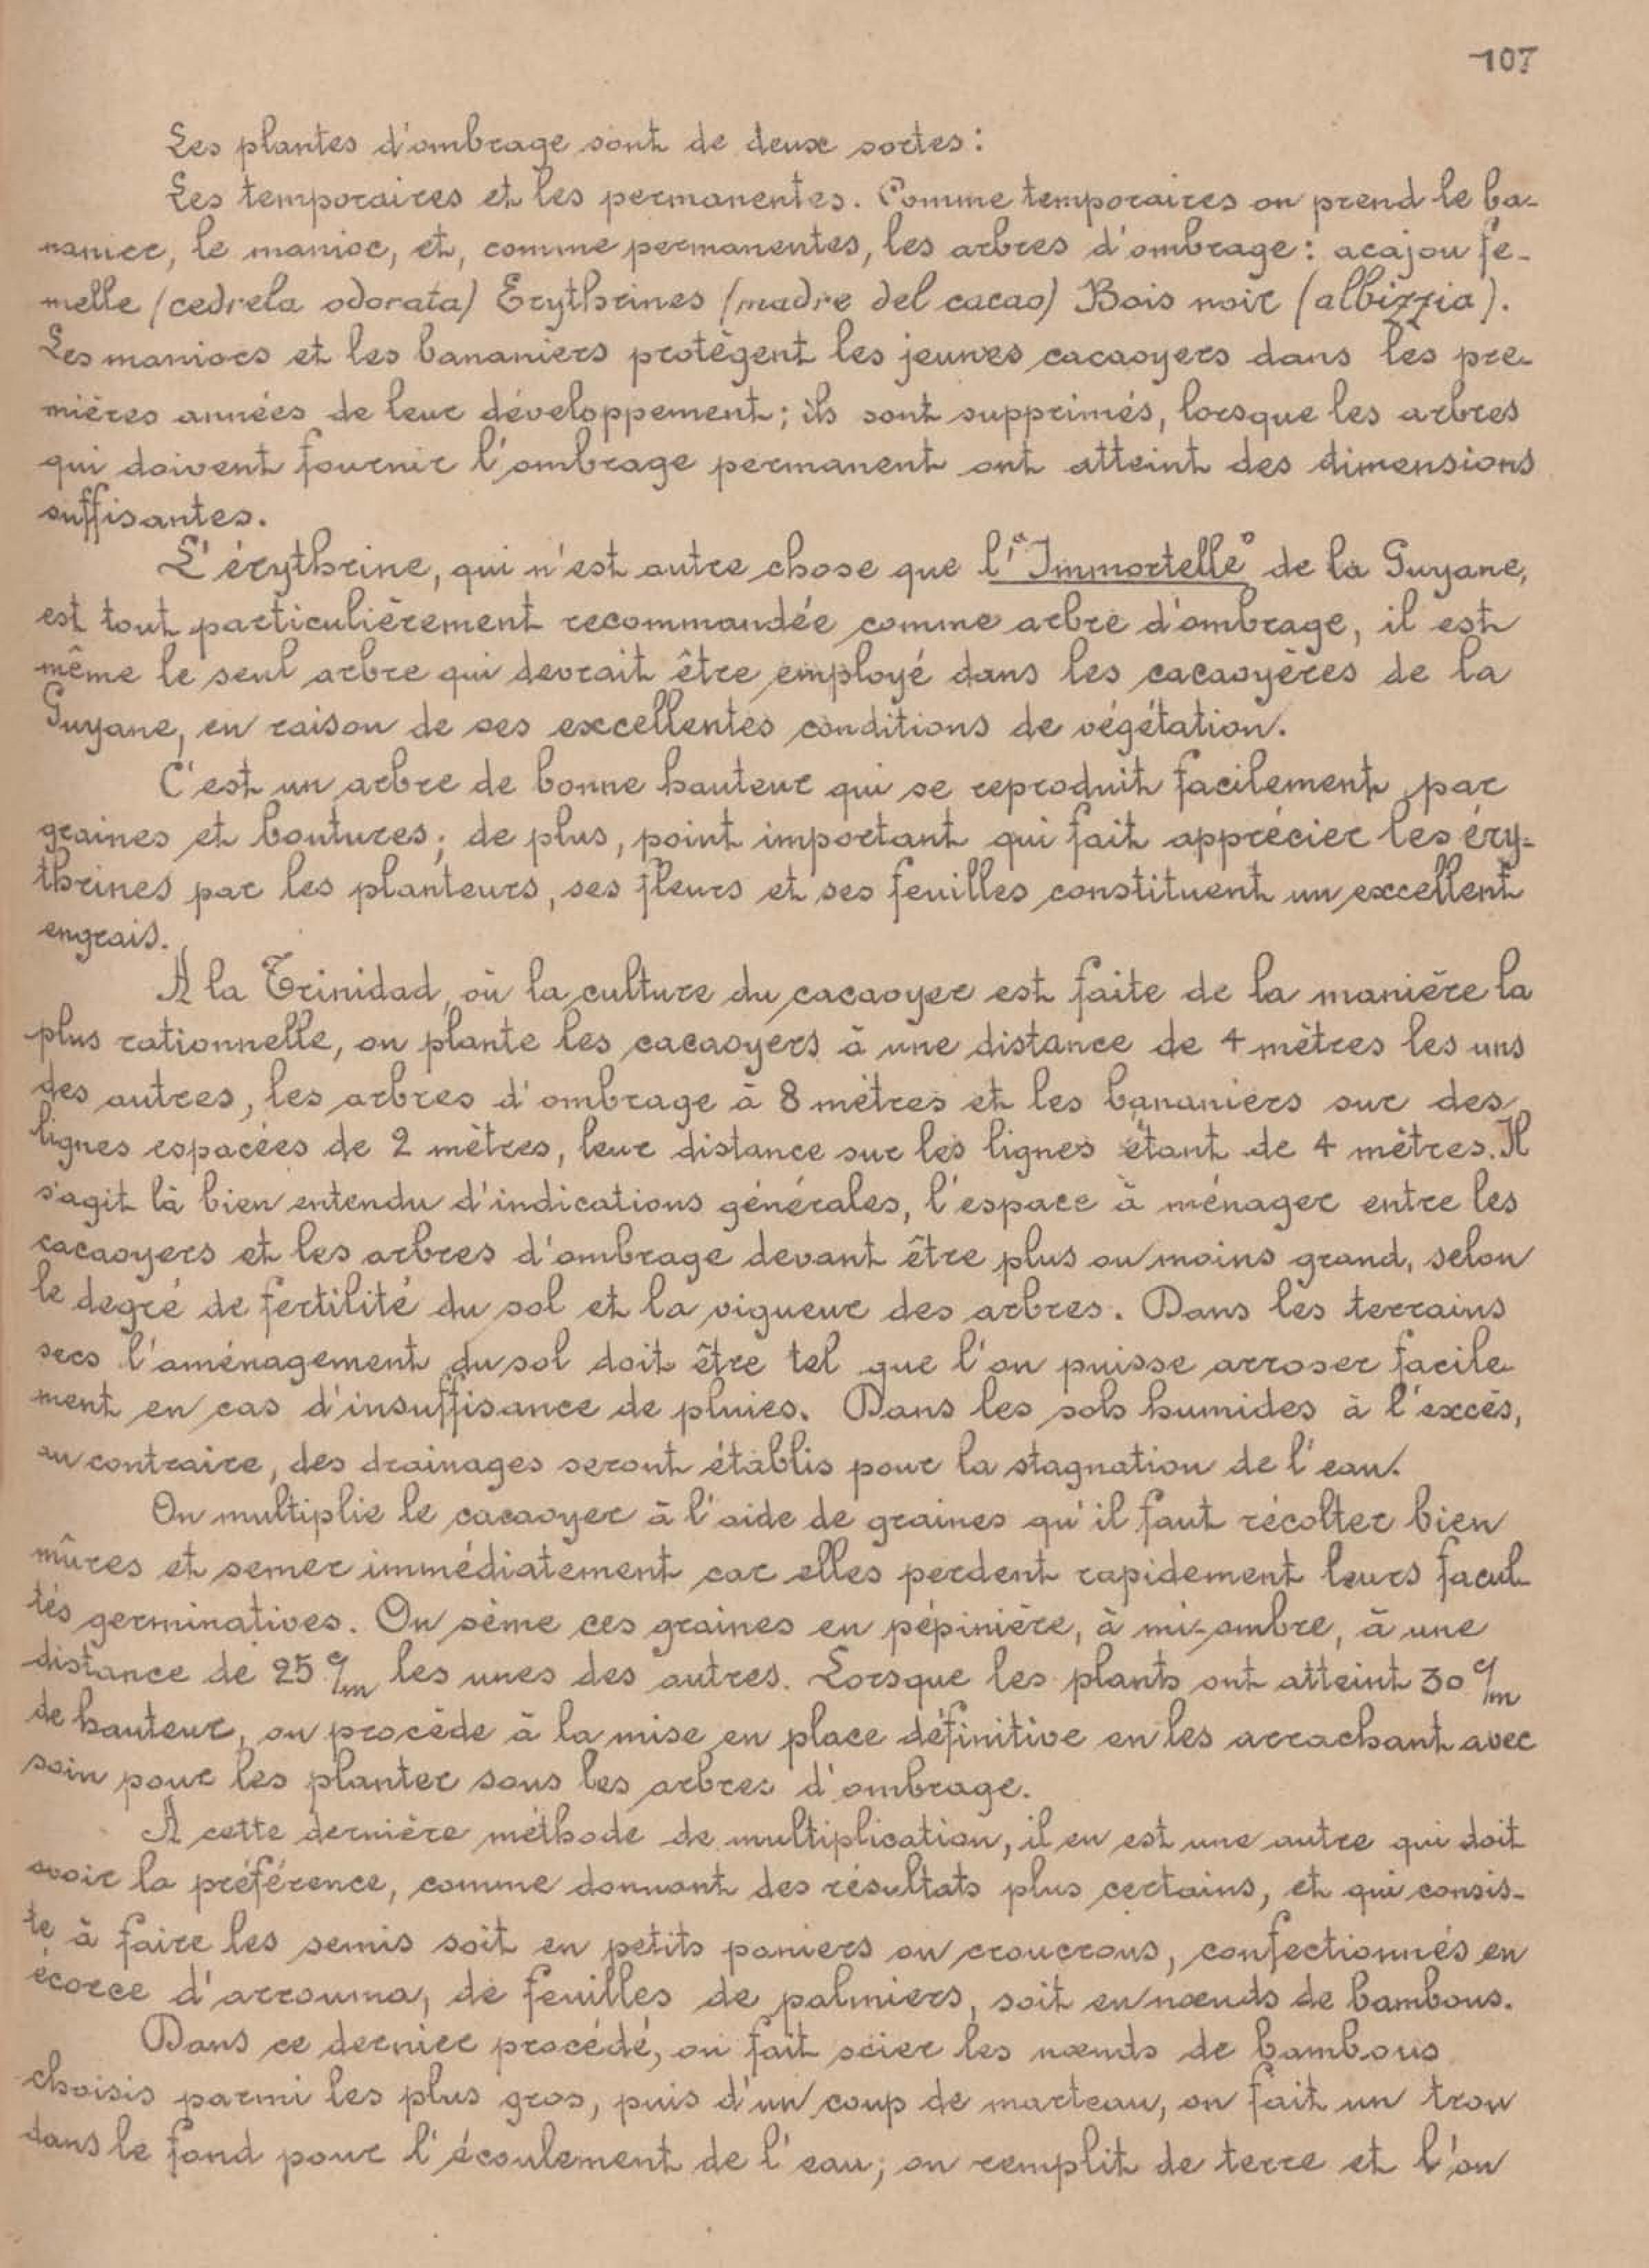 107
Les plantes d'ombrage sont de deux sortes :
Les temporaires et les permanentes. Comme temporaires on prend le ba-
nanier, le manioc, et, comme permanentes, les arbres d'ombrage : acajou fe-
melle (cedrela odorata) Erythrines (madre del cacao) Bois noir (albizzia).
Les maniocs et les bananiers protègent les jeunes cacaoyers dans les pre-
mières années de leur développement ; ils sont supprimés, lorsque les arbres
qui doivent fournir l'ombrage permanent ont atteint des dimensions
suffisantes.
L'érythrine, qui n'est autre chose que l'"Immortelle" de la Guyane,
est tout particulièrement recommandée comme arbre d'ombrage, il est
même le seul arbre qui devrait être employé dans les cacaoyères de la
Guyane, en raison de ses excellentes conditions de végétation.
C'est un arbre de bonne hauteur qui se reproduit facilement par
graines et boutures ; de plus, point important qui fait apprécier les éry-
thrines par les planteurs, ses fleurs et ses feuilles constituent un excellent
engrais.
A la Trinidad, où la culture du cacaoyer est faite de la manière la
plus rationnelle, on plante les cacaoyers à une distance de 4 mètres les uns
des autres, les arbres d'ombrage à 8 mètres et les bananiers sur des
lignes espacées de 2 mètres, leur distance sur les lignes étant de 4 mètres. Il
s'agit là bien entendu d'indications générales, l'espace à ménager entre les
cacaoyers et les arbres d'ombrage devant être plus ou moins grand, selon
le degré de fertilité du sol et la vigueur des arbres. Dans les terrains
secs l'aménagement du sol doit être tel que l'on puisse arroser facile
ment en cas d'insuffisance de pluies. Dans les sols humides à l'excès,
au contraire, des drainages seront établis pour la stagnation de l'eau.
On multiplie le cacaoyer à l'aide de graines qu'il faut récolter bien
mûres et semer immédiatement car elles perdent rapidement leurs facul
tés germinatives. On sème ces graines en pépinière, à mi-ombre, à une
distance de 25 c/m les unes des autres. Lorsque les plants ont atteint 30 c/m
de hauteur, on procède à la mise en place définitive en les arrachant avec
soin pour les planter sous les arbres d'ombrage.
A cette dernière méthode de multiplication, il en est une autre qui doit
avoir la préférence, comme donnant des résultats plus certains, et qui consis-
te à faire les semis soit en petits paniers ou croucrous, confectionnés en
écorce d'arrouma, de feuilles de palmiers, soit en nœuds de bambous.
Dans ce dernier procédé, on fait scier les nœuds de bambous
choisis parmi les plus gros, puis d'un coup de marteau, on fait un trou
dans le fond pour l'écoulement de l'eau ; on remplit de terre et l'on